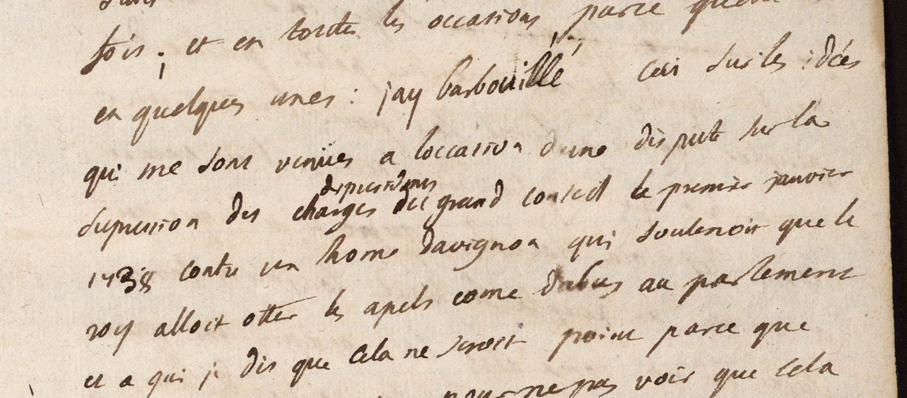 fois ; et en toutes les occasions parce
en quelques unes : jay barbouillé ceci sur les idées
qui me sont venues a loccasion dune dispute sur la
supression des charges de presidens du grand conseil le premier janvier
1738 contre un home davignon qui soutenoit que le
roy alloit otter les apels come dabus au parlement
et a qui je dis que cela ne seroit point parce que
pour ne pas voir que cela